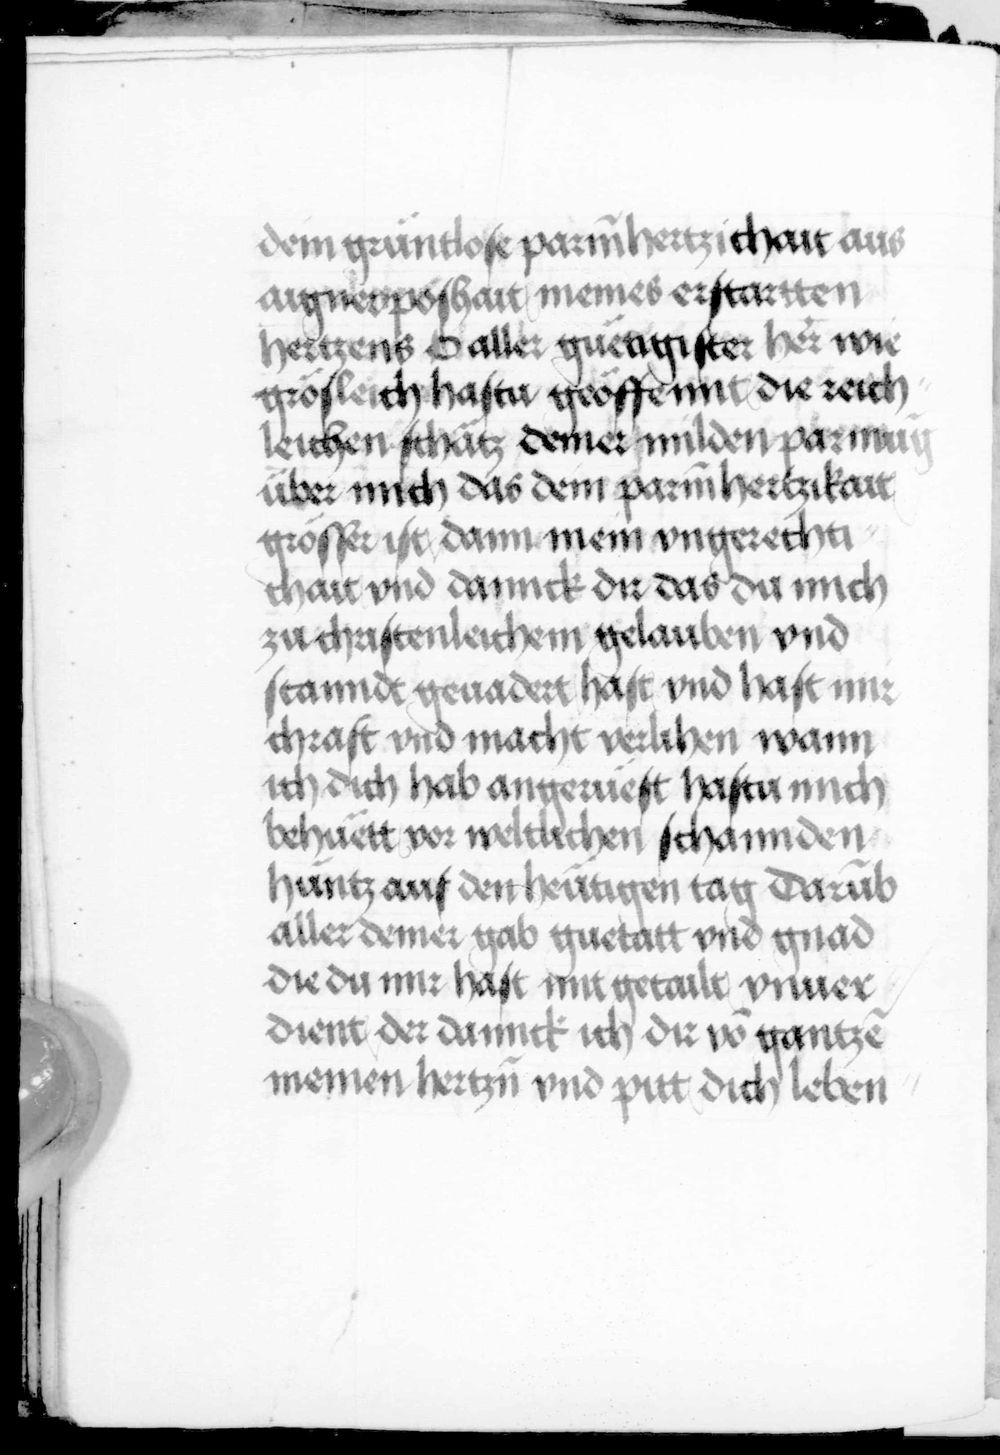 dein gruntlose parm̄hertzichait aus
aigner poshait meines erstartten
hertzens O aller guetigister her wie
grösleich hastu geöffennt die reich
leichen schätz deiner milden parmung
über mich das dein parm̄hertzikait
grösser ist dann mein vngerechti
chait vnd dannck dir das du mich
zu christenleichem gelauben vnd
stanndt geuadert hast vnd hast mir
chraft vnd macht verlihen wann
ich dich hab angerueft hastu mich
behuett vor weltlichen schannden
hüntz auf den heütigen tag Darūb
aller deiner gab guetatt vnd gnad
die du mir hast mit getailt vnuer
dient der dannck ich dir vō gantzē
meinen hertzn̄ vnd pitt dich leben